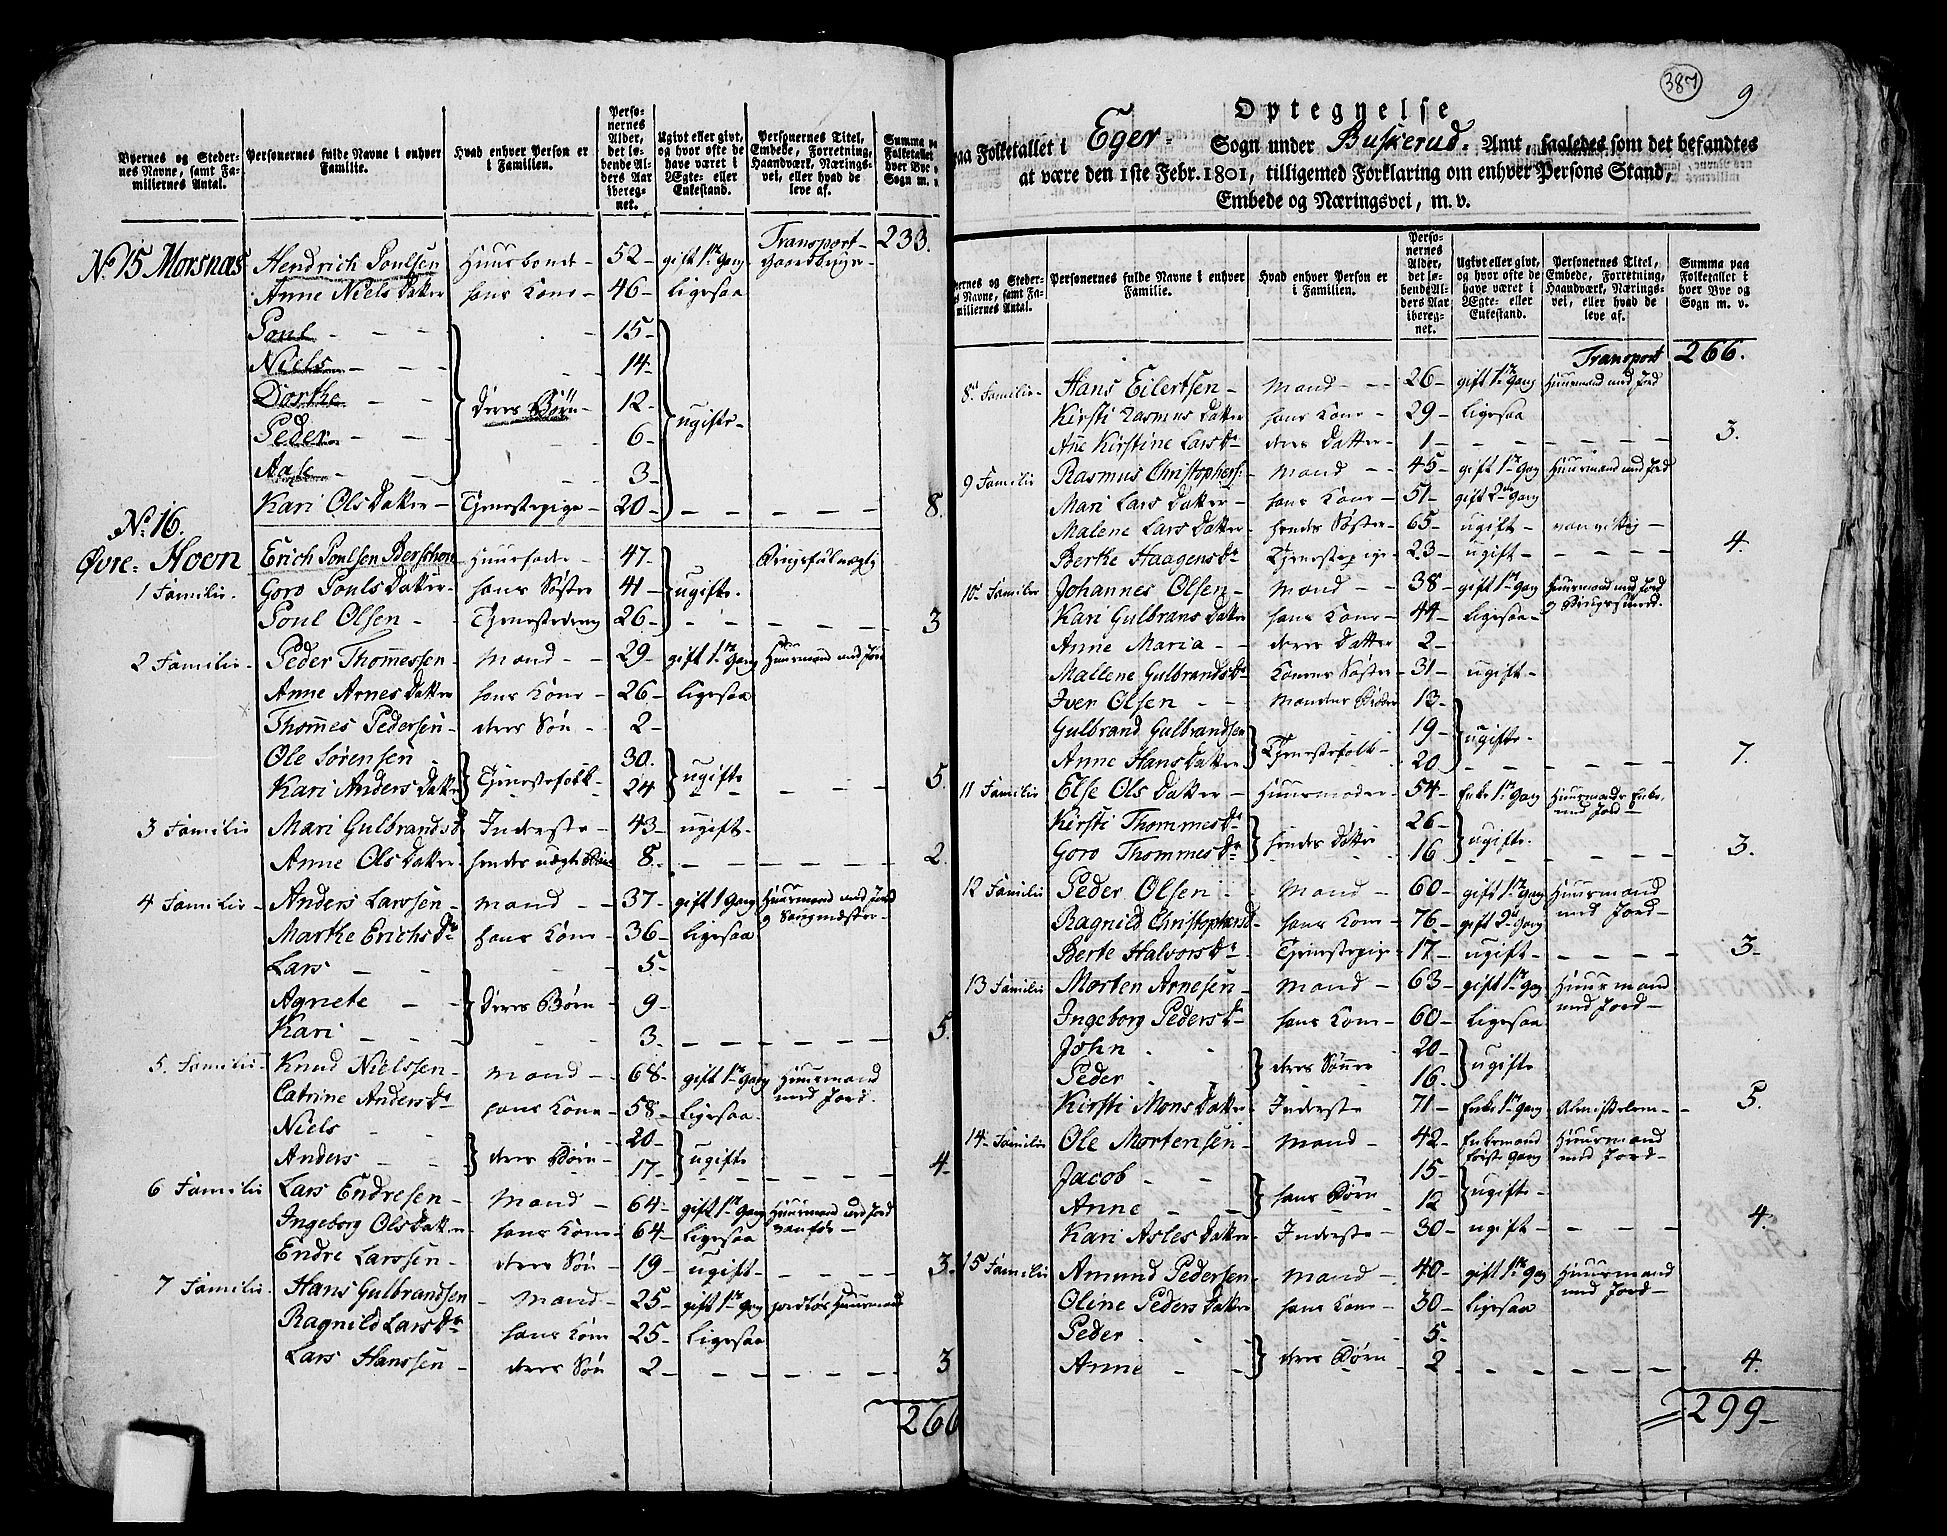 Byernes og Steder-
nes Navne, samt Fa-
milliernes Antal.
Personernes fulde Navne i enhver
Familie.
Hvad enhver Person er
i Familien.
Perso-
nernes
Alder,
det lø-
bende Al-
ders Aar
ibereg-
net.
Ugivt eller givt,
og hvor ofte de
have været i
Ægte- eller
Enkestand.
Personernes Titel,
Embede, Forretning,
Haandværk, Nærings-
vei, eller hvad de
leve af.
Summa paa
Folketallet
hver Bye o
Sogn m. v.
Transport 233.
No 15 Morsnæs Hendrich Poulsen Huusbond 52 gift 1ste Gang Gaardbruger
Anne Niels Datter hans Kone 46 ligesaa
Poul 15
Niels 14
Dorthe deres Börn 12 ugifte
Peder 6
Aase 3
Kari Ols Datter Tjenestepige 20 8.
No 16.
Øvre Hoen Erich Poulsen Huusfader 47
1 Familie. Goro Pouls Datter hans Söster 41 ugifte.
Poul Olsen Tjenestedreng 26 3
2 Familie Peder Thomessen Mand 29 gift 1ste Gang Huusmand med Jord
Anne Arnes Datter hans Kone 26 ligesaa
Thommes Pedersen deres Sön 2
Ole Sørensen 30.
Kari Anders Datter Tjenestefolk 24 ugifte 5
3 Familie Mari Gulbrands Dr Inderste 43 ugift
Anne Ols Datter hendes uægte 8. 2.
4 Familie Anders Larssen Mand 37 gift 1 Gang Huusmand med Jord
Marthe Erichs Dr hans Kone 36 ligesaa og Sangmester
Lars 5
Agnete deres Børn 9
Kari 3. 5.
5. Familie Knud Nielssen Mand 68 gift 1ste Gang Huusmand
Catrine Anders Dr hans Kone 58 ligesaa med Jord.
Niels 20
Anders deres Børn 17 ugifte 4
6 Familie Lars Endresen Mand 64 gift 1ste Gang Huusmand med Jord
Ingeborg Ols Datter hans Kone 64 ligesaa vanför
Endre Larssen deres Sön 19 ugift 3.
7 Familie Hans Gulbrandsen Mand 25 gift 1ste Gang jordløs Huusmand
Ragnild Lars Dr hans Kone 25 ligesaa
Lars Hanssen deres Sön 2 3
266
387
9
Optegnelse
paa Folketallet i Eger Sogn under Buskerud Amt, saaledes som det befandtes
at være den 1ste Febr. 1801, tilligemed Forklaring om enhver Persons Stand,
Embede og Næringsvei, m. v.
yernes og Steder-
es Navne, samt Fa-
milliernes Antal.
Personernes fulde Navne i enhver
Familie.
Hvad enhver Person er
i Familien.
Perso-
nernes
Alder,
det lø-
bende Al-
ders Aar
ibereg-
net.
Ugivt eller givt,
og hvor ofte de
have været i
Ægte- eller
Enkestand.
Personernes Titel,
Embede, Forretning,
Haandværk, Nærings-
vei, eller hvad de
leve af.
Summa paa
Folketallet i
hver Bye og
Sogn m. v.
Transport 266.
8de Familie Hans Eilertsen Mand 26 gift 1ste Gang Huusmand med Jord
Kirsti Rasmus Datter hans Kone 29 ligesaa
Ane Kirstine Lars Dr deres Datter 1 3.
9 Familie Rasmus Christophers. Mand 45 gift 1ste Gang Huusmand med Jord
Mari Lars Datter hans Kone 51 gift 2den Gang
Malene Lars Datter hendes Söster 65 ugift vanvittig
Berthe Haagens Dr Tjenestepige 23 ugift 4.
10de Familie Johannes Olsen Mand 38 gift 1ste Gang Huusmand med Jord
Kari Gulbrans Datter hans Kone 44 ligesaa
Anne Maria deres Datter 2
Mallene Gulbrands Dr Konens Söster 31 ugift
Iver Olsen Mandens Broder 13
Gulbrand Gulbrandsen 19
Anne Hans Datter Tjenestefolk 20 ugifte 7.
11 Familie Else Ols Datter Huusmoder 54 Enke 1ste Gang Huusmands Enke
Kirsti Thommes Dr 26 med Jord
Goro Thommes Dr hendes Døttre 16 ugifte. 3.
12 Familie Peder Olsen Mand 60 gift 1ste Gang Huusmand
Ragnild Christophers D hans Kone 76 gift 2den Gang med Jord
Berte Halvors Dr Tjenestepige 17 ugift 3
13 Familie Morten Arnesen Mand 63 gift 1ste Gang Huusmand
Ingeborg Peders Dr hans Kone 60 ligesaa med Jord
John 20
Peder deres Sönner 16 ugifte
Kirsti Mons Datter Inderste 71 Enke 1ste Gang Almisselem 5.
14 Familie Ole Mortensen Mand 42 Enkemand Huusmand
første Gang med Jord
Jacob 15
Anne hans Børn 12 ugifte
Kari Asles Datter Inderste 30 ugift 4.
15 Familie Amund Pedersen Mand 40 gift 1ste Gang Huusmand
Oline Peders Datter hans Kone 30 ligesaa med Jord
Peder 5
Anne deres Børn 2 4.
299